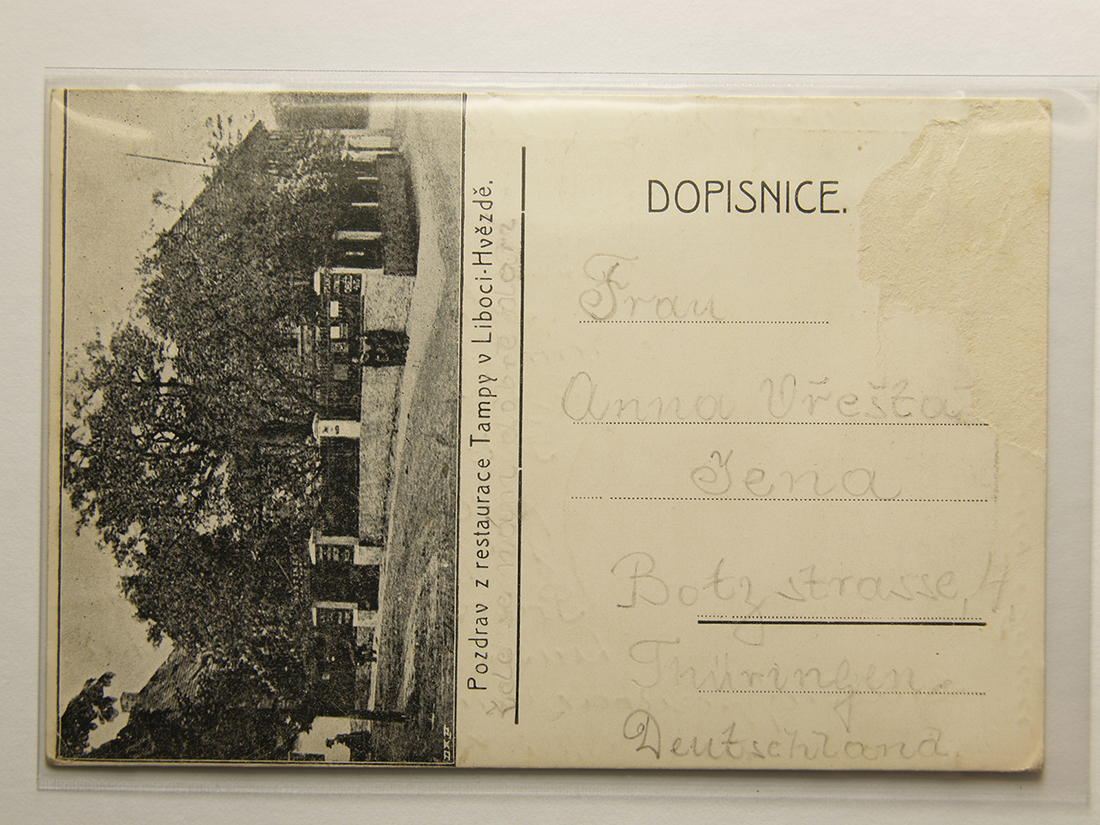 DOPISNICE.
Frau
Anna Vřešťá
Jena
Botzstrasse, 4,
Thüringen.
Deutschland.
Pozdrav z restaurace Tampy v Liboci-Hvězdě.